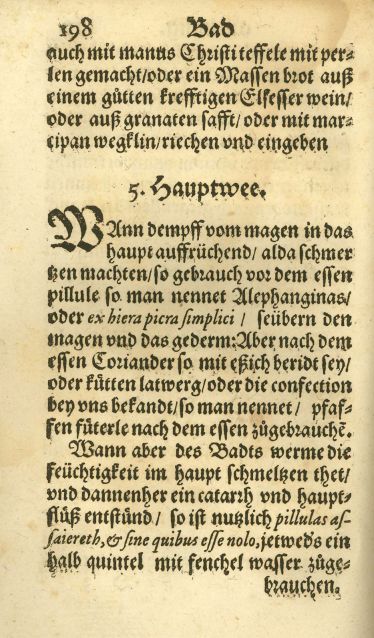 198 Bad
auch mit manus Christi teffele mit per-
len gemacht/oder ein Massen brot auß
einem gütten krefftigen Elsesser wein/
oder auß granaten safft/oder mit mar-
cipan wegklin/riechen vnd eingeben
5. Hauptwee.
WAnn dempff vom magen in das
haupt auffrüchend/ alda schmer
tzen machten/so gebrauch vor dem essen
pillule so man nennet Alephanginas/
oder ex hiera picra simplici / seübern den
magen vnd das gederm: Aber nach dem
essen Coriander so mit eßich beridt sey/
oder kütten latwerg/oder die confection
bey vns bekandt/so man nennet/ pfaf-
fen füterle nach dem essen zůgebrauchē.
Wann aber des Badts werme die
feüchtigkeit im haupt schmeltzen thet/
vnd dannenher ein catarrh vnd haupt-
flüß entstünd / so ist nutzlich pillulas as-
saiereth, & sine quibus esse nolo, jetweds ein
halb quintel mit fenchel wasser zůge-
brauchen.